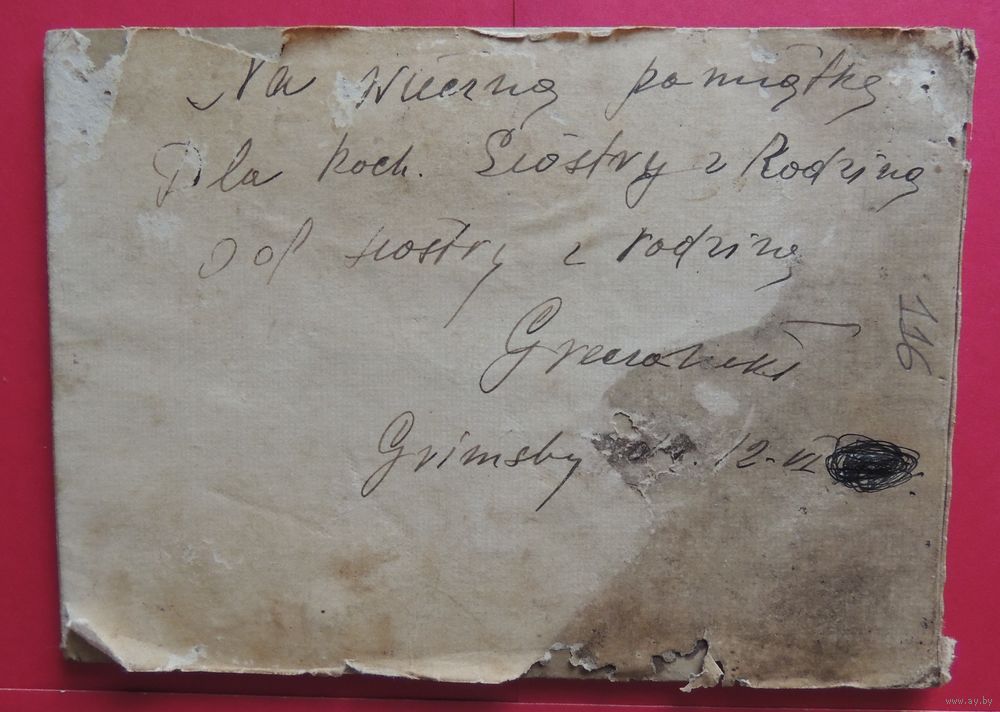 Na wieczną pamiątkę
Dla koch. Siostry z Rodziną
Od siostry z rodziną
Grimsby 12-VI
116
www.ay.by